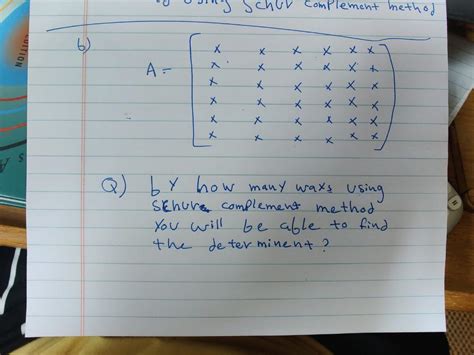 by using Schur complement method
b)
A =
x x x x x x
x x x x x x
x x x x x x
x x x x x x
x x x x x x
x x x x x x
Q) by how many ways using
Schur complement method
you will be able to find
the determinent?
EDITION